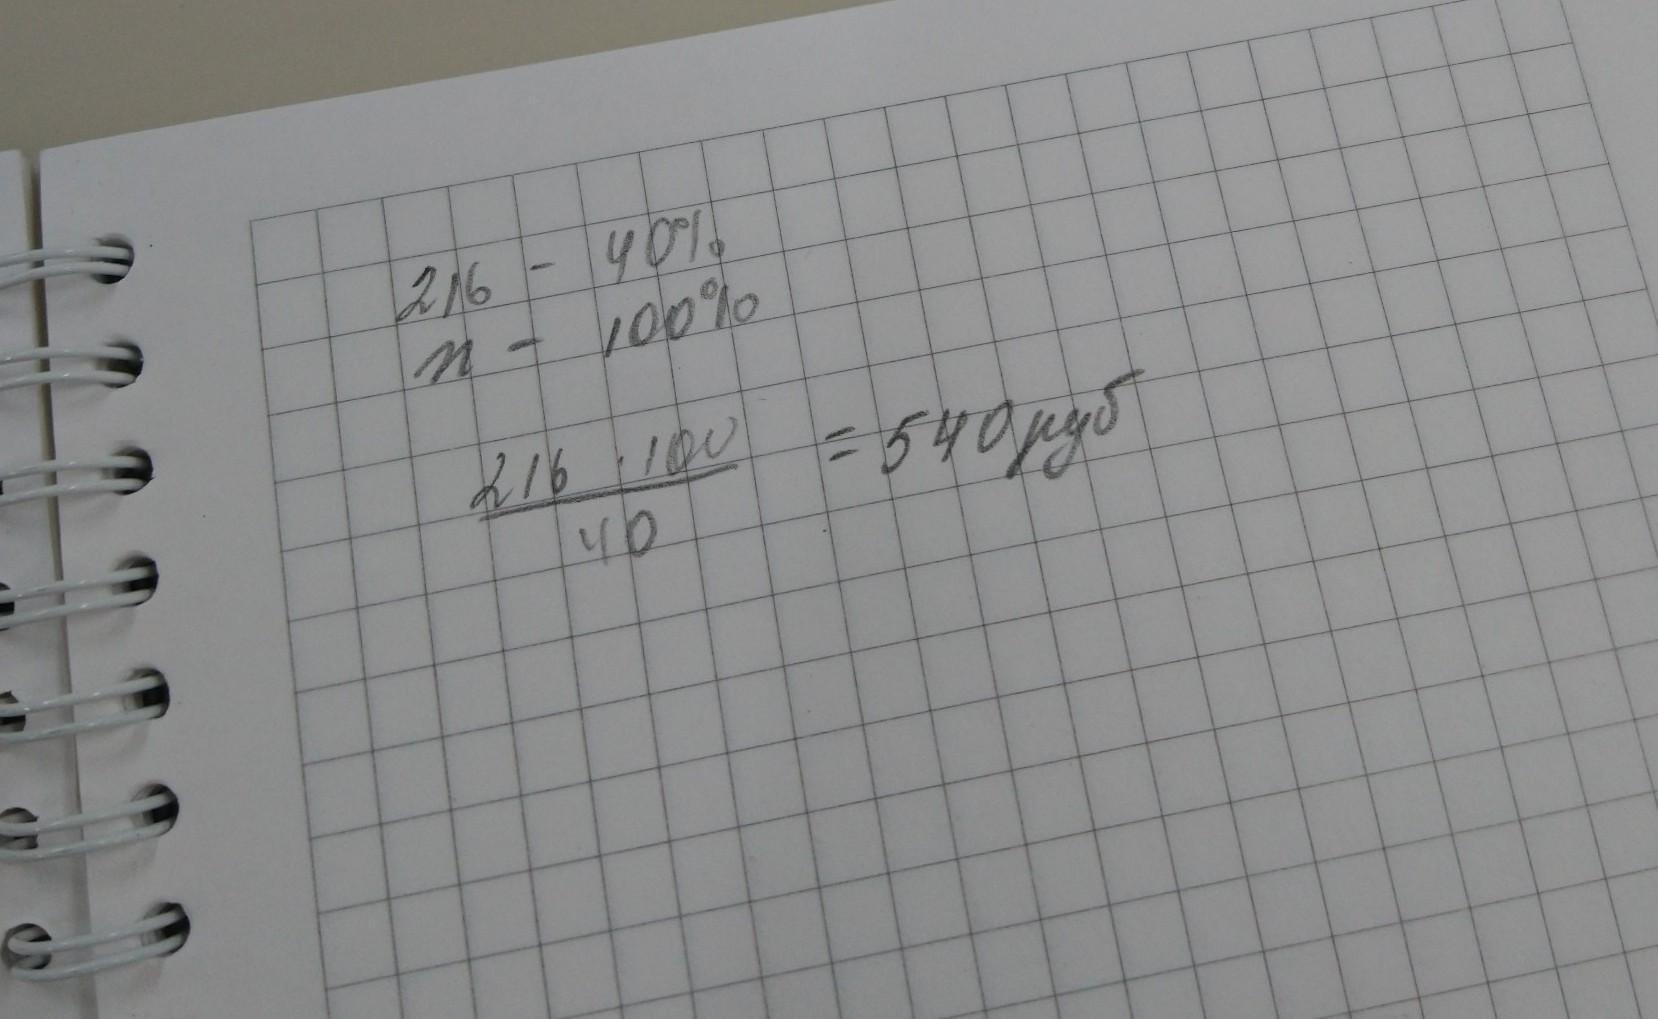 216 - 40%
n - 100%
216 · 100 = 540 руб
40